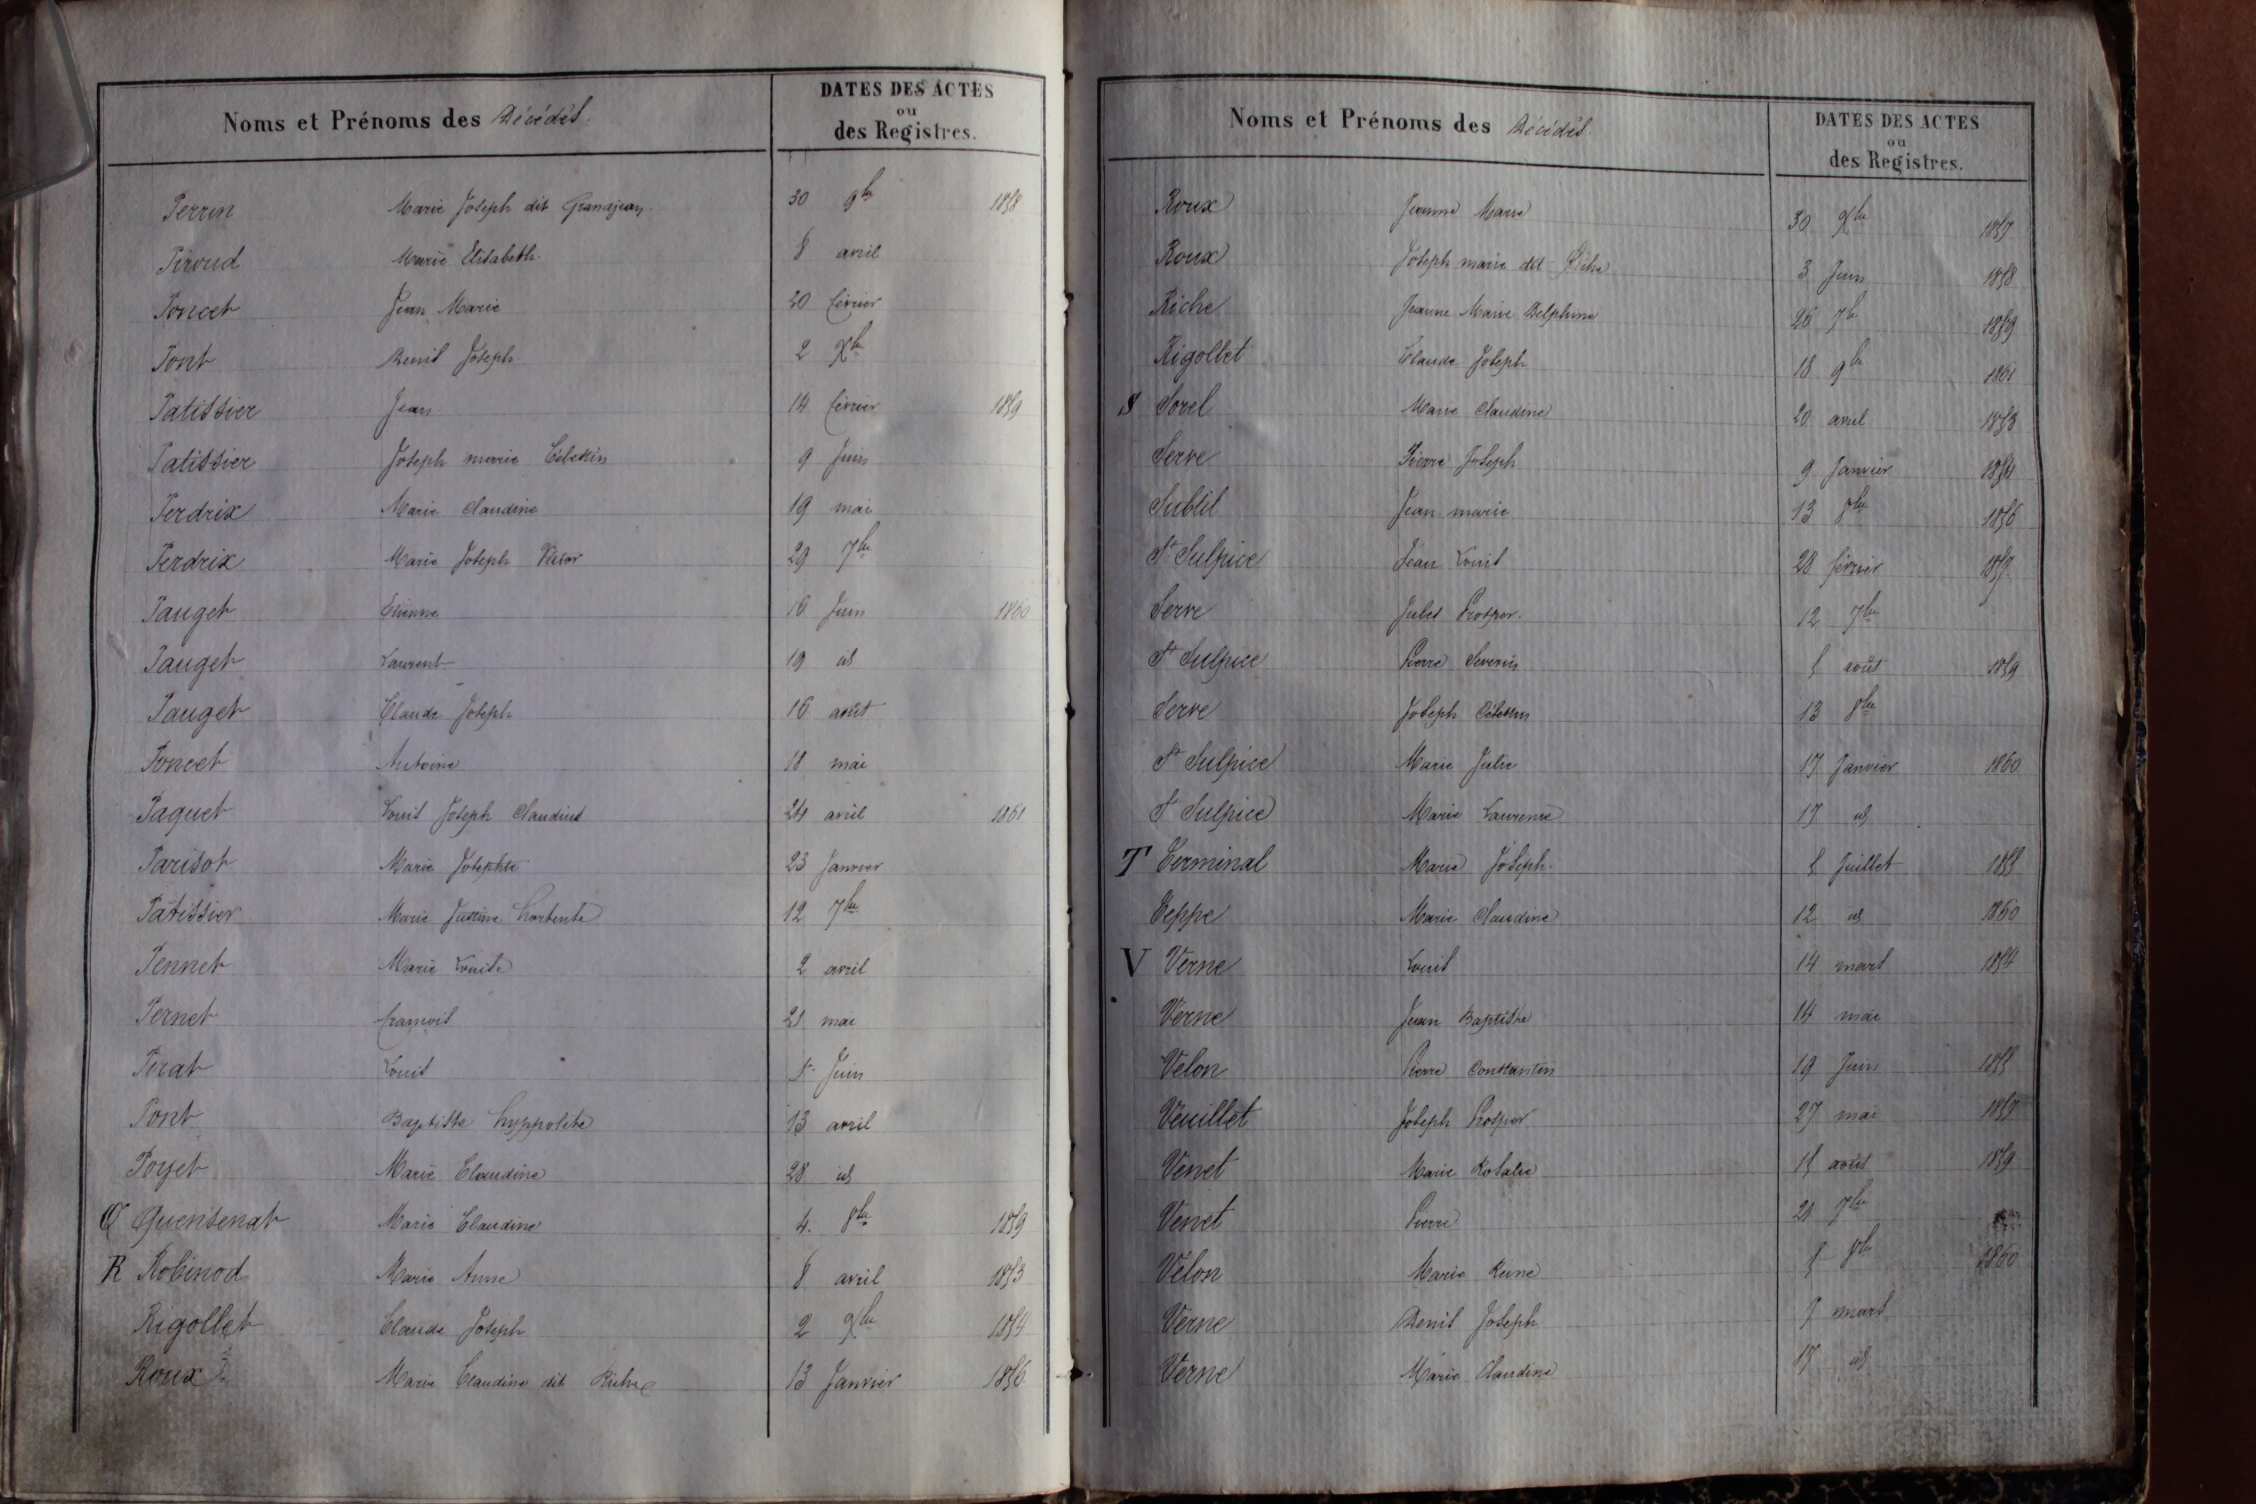 Noms et Prénoms des Décédés.
DATES DES ACTES
ou
des Registres.
Perrin Marie Joseph dit Grandjean 30 9bre 1858
Piroud Marie Elisabeth 8 avril
Poncet Jean Marie 20 février
Pont Denis Joseph 2 Xbre
Patissier Jean 14 février 1859
Patissier Joseph marie Célestin 9 Juin
Perdrix Marie Claudine 19 mai
Perdrix Marie Joseph Victor 29 7bre
Pauget Etienne 16 Juin 1860
Pauget Laurent 19 id
Pauget Claude Joseph 16 août
Poncet Antoine 18 mai
Paquet Louis Joseph Claudius 24 avril 1861
Parisot Marie Josephte 23 Janvier
Patissier Marie Justine hortense 12 7bre
Pennet Marie Louise 2 avril
Pernet françois 21 mai
Pirat Louis Juin
Pont Baptiste hyppolite 13 avril
Poyet Marie Claudine 28 id
Q Quensenat Marie Claudine 4 8bre 1859
R Robinod Marie Anne 8 avril 1853
Rigollet Claude Joseph 2 Xbre 1854
Roux Marie Claudine dit Riche 13 Janvier 1856
Noms et Prénoms des Décédés.
DATES DES ACTES
ou
des Registres.
Roux Jeanne Marie 30 Xbre 1857
Roux Joseph marie dit Riche 3 Juin 1858
Riche Jeanne Marie Delphine 26 7b 1859
Rigollet Claude Joseph 18 9b 1861
S Sorel Marie Claudine 20 avril 1853
Serve Pierre Joseph 9 Janvier
Subtil Jean marie 13 8bre 1856
St Sulpice Jean Louis 28 février 1857
Serve Jules Prosper. 12 7bre
St Sulpice Pierre Severin 5 août 1859
Serve Joseph Célestin 13 8bre
St Sulpice Marie Julie 17 Janvier 1860
St Sulpice Marie Laurence 17 id
T Terminal Marie Joseph. 5 Juillet 1855
Teppe Marie Claudine 12 id 1860
V Verne Louis 14 mars 1854
Verne Jean Baptiste 14 mai
Velon Pierre Constantin 19 Juin 1855
Veuillet Joseph Prosper 27 mai 1857
Venet Marie Rosalie 15 août 1859
Venet Pierre 21 7bre
Vélon Marie Reine 5 8b 1860
Verne Denis Joseph 7 mars
Verne Marie Claudine 17 id